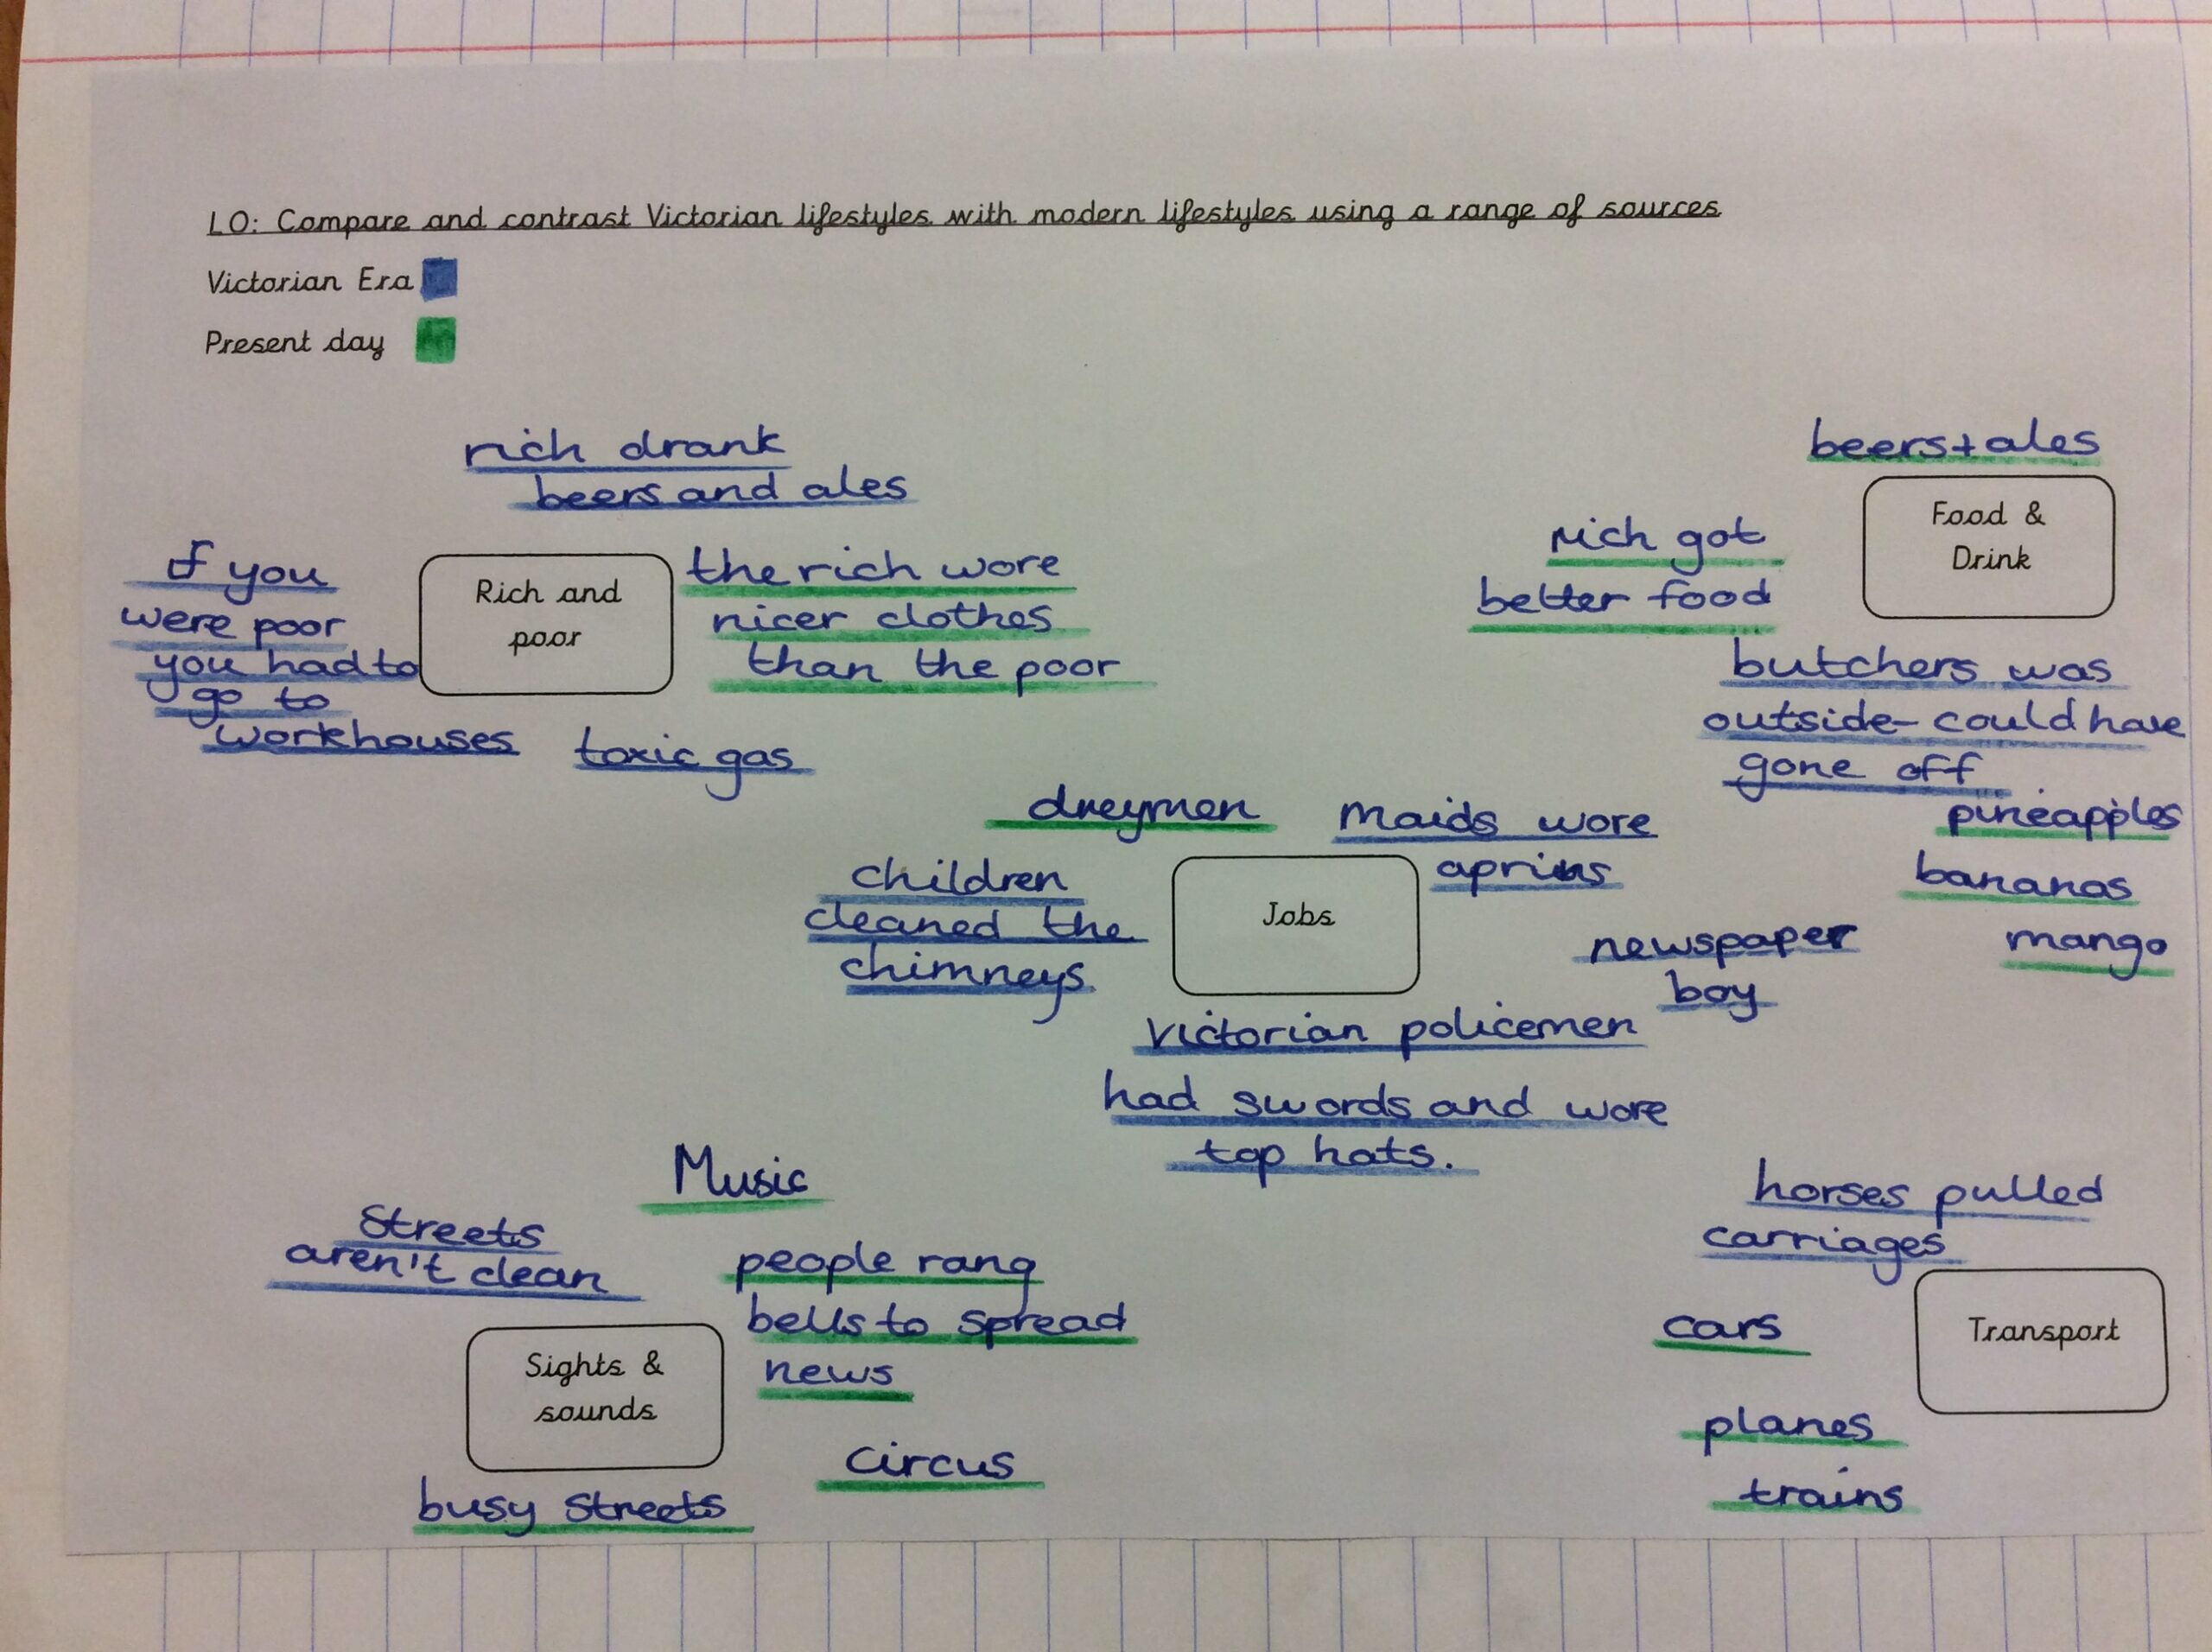 LO: Compare and contrast Victorian lifestyles with modern lifestyles using a range of sources
Victorian Era
Present day
rich drank
beers and ales
If you
were poor
you had to
go to
workhouses
Rich and
poor
the rich wore
nicer clothes
than the poor
toxic gas
beers + ales
Food &
Drink
rich got
better food
butchers was
outside - could have
gone off
pineapples
bananas
mango
dreymen
maids wore
children
cleaned the
chimneys.
Jobs
newspaper
boy
Victorian policemen
had swords and wore
top hats.
Music
Streets
aren't clean
people rang
bells to spread
news
Sights &
sounds
circus
busy streets
horses pulled
carriages
Transport
cars
planes
trains